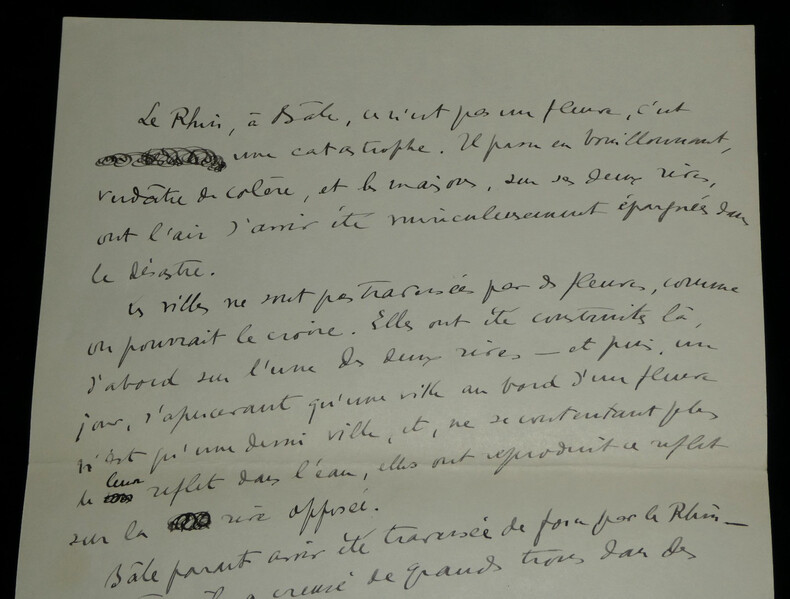 Le Rhin, à Bâle, ce n'est pas un fleuve, c'est
une catastrophe. Il passe en bouillonnant,
verdâtre de colère, et les maisons, sur ses deux rives,
ont l'air d'avoir été miraculeusement épargnées dans
le désastre.
Les villes ne sont pas traversées par des fleuves, comme
on pourrait le croire. Elles ont été construites là,
d'abord sur l'une des deux rives — et puis, un
jour, s'apercevant qu'une ville au bord d'un fleuve
n'est qu'une demi ville, et, ne se contentant plus
de leur reflet dans l'eau, elles ont reproduit ce reflet
sur la rive opposée.
Bâle parait avoir été traversée de force par le Rhin —
a creusé de grands trous dans des